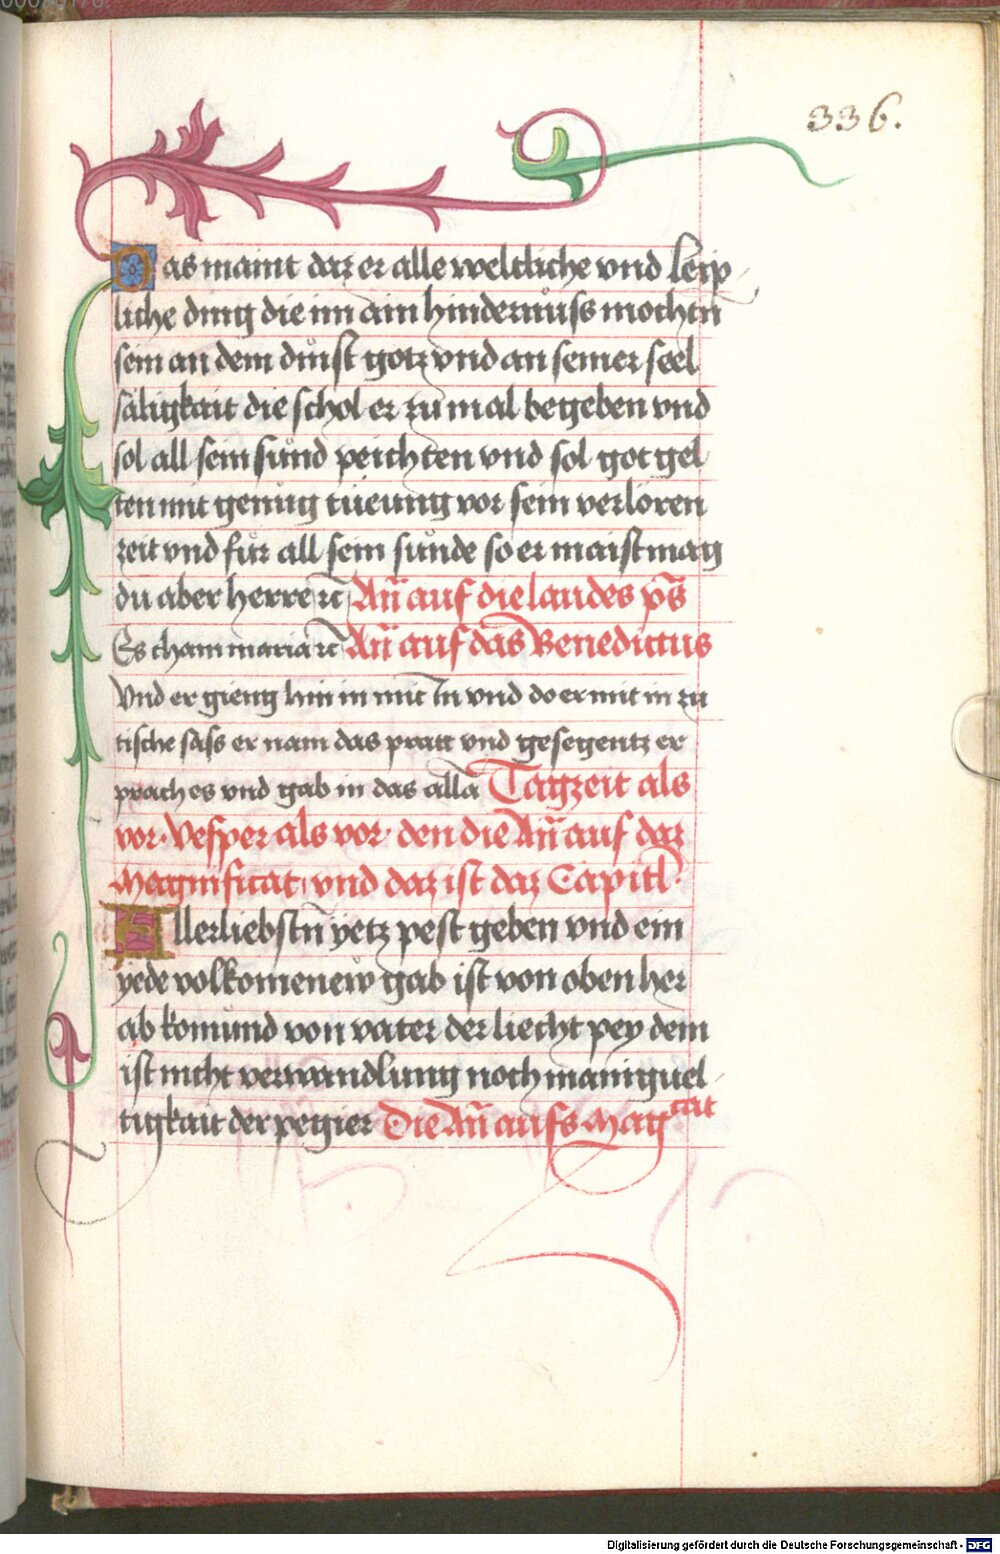 336.
Das maint daz er alle weltliche vnd leip
liche ding die im ain hindernüss mochtn
sein an dem dinst gotz vnd an seiner seel
säligkait die schol er zu mal begeben vnd
sol all sein sünd peichten vnd sol got gel
ten mit genüg tüeung vor sein verloren
zeit vnd für all sein sünde so er maist mag
du aber herre ꝛc Añ auf die laudes ps̃
Es cham maria ꝛc Añ auf das Benedictus
Vnd er gieng hin in mit In vnd do er mit in zu
tische sass er nam das pratt vnd gesegentz er
prach es vnd gab in das alla Tagzeit als
vor · Vesper als vor · den die Añ auf daz
Magnificat vnd daz ist daz Capitl ·
Allerliebstñ yetz pest geben vnd ein
yede volkomenew gab ist von oben her
ab komund von vater der liecht pey dem
ist nicht verwandlung noch maniguel
tigkait der pegier Die Añ aufs Mag cat
Digitalisierung gefördert durch die Deutsche Forschungsgemeinschaft - DFG